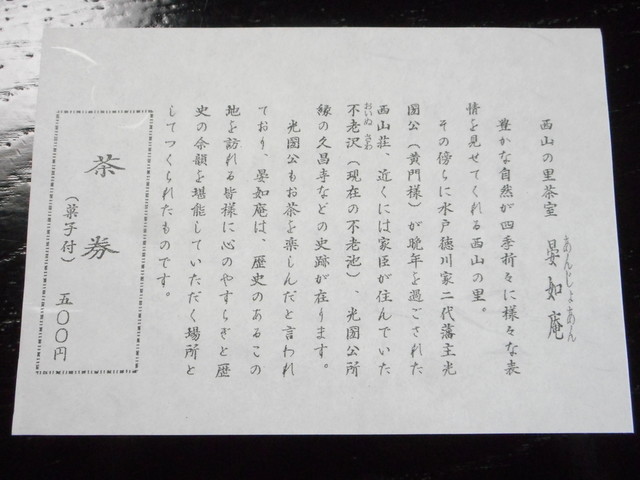 西山の里茶室　晏如庵
あんじょあん
豊かな自然が四季折々に様々な表
情を見せてくれる西山の里。
その傍らに水戸徳川家二代藩主光
圀公（黄門様）が晩年を過ごされた
西山荘、近くには家臣が住んでいた
おいぬ さわ
不老沢（現在の不老池）、光圀公所
縁の久昌寺などの史跡が在ります。
光圀公もお茶を楽しんだと言われ
ており、晏如庵は、歴史のあるこの
地を訪れる皆様に心のやすらぎと歴
史の余韻を堪能していただく場所と
してつくられたものです。
茶券
（菓子付）　五００円